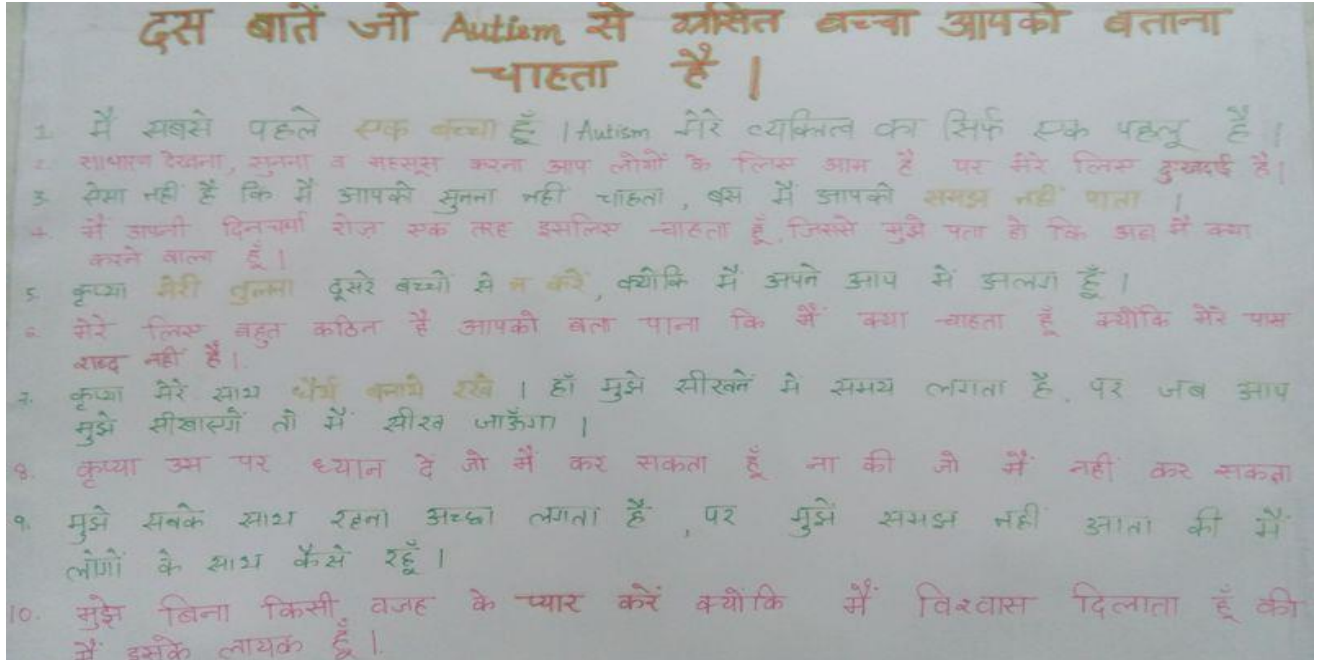 दस बातें जो Autism से ग्रसित बच्चा आपको बताना
चाहता है |
1. मैं सबसे पहले एक बच्चा हूँ | Autism मेरे व्यक्तित्व का सिर्फ एक पहलू है |
2. साधारण देखना, सुनना व महसूस करना आप लोगों के लिए आम है पर मेरे लिए दुःखदाई है |
3. ऐसा नहीं है कि मैं आपको सुनना नहीं चाहता, बस मैं आपको समझ नहीं पाता |
4. मैं अपनी दिनचर्या रोज़ एक तरह इसलिए चाहता हूँ, जिससे मुझे पता हो कि अब मैं क्या
करने वाला हूँ |
5. कृप्या मेरी तुलना दूसरे बच्चों से न करें, क्योंकि मैं अपने आप में अलग हूँ |
6. मेरे लिए बहुत कठिन है आपको बता पाना कि मैं क्या चाहता हूँ क्योंकि मेरे पास
शब्द नहीं है |
7. कृप्या मेरे साथ धैर्य बनाये रखे | हाँ मुझे सीखने में समय लगता है, पर जब आप
मुझे सीखाएगें तो मैं सीख जाऊँगा |
8. कृप्या उस पर ध्यान दे जो मैं कर सकता हूँ ना की जो मैं नहीं कर सकता
9. मुझे सबके साथ रहना अच्छा लगता है, पर मुझे समझ नहीं आता की मैं
लोगों के साथ कैसे रहूँ |
10. मुझे बिना किसी वजह के प्यार करें क्योंकि मैं विश्वास दिलाता हूँ की
मैं इसके लायक हूँ |